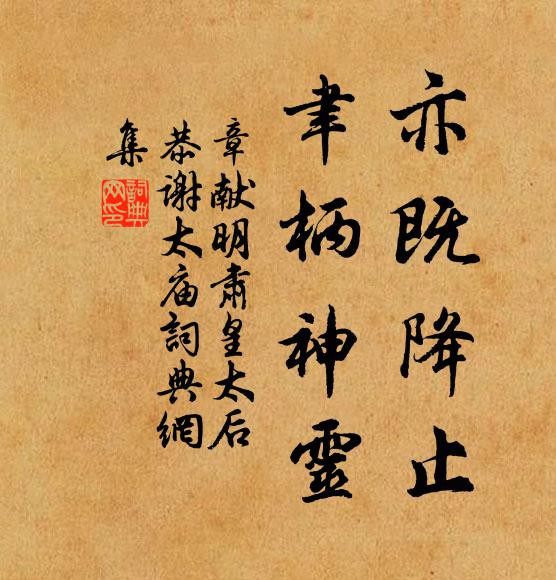 亦既降止
聿柄神靈
章献明肅皇太后
恭谢太庙詞典網
集
詞典
网印